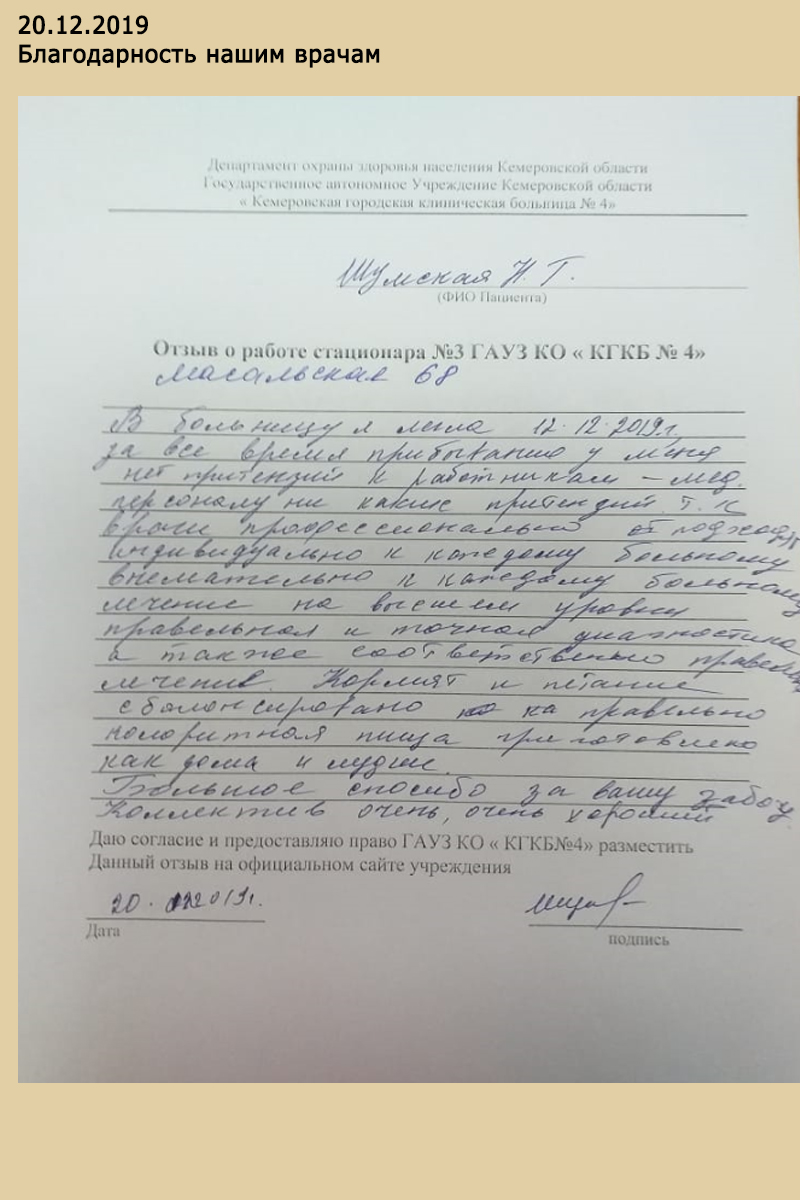 20.12.2019
Благодарность нашим врачам
Департамент охраны здоровья населения Кемеровской области
Государственное автономное Учреждение Кемеровской области
« Кемеровская городская клиническая больница № 4»
Шумская Н. Г.
(ФИО Пациента)
Отзыв о работе стационара №3 ГАУЗ КО « КГКБ № 4»
68
В больницу я легла 12.12.2019г.
за все время прибывание у меня
нет притензий к работникам – мед.
персоналу ни каких притендий. т. к
врачи професссиональны
индивидуально к каждому больному
внемательно к каждому больному
лечение на высшем уровни
правельная и точная диагностика
а также соответственно
лечение. Кормият и петание
сболонсировано правельно
колоритная пища приготовлено
как дома и лудше.
Большое спосибо за вашу заботу.
Коллектив очень, очень хороший
Даю согласие и предоставляю право ГАУЗ КО « КГКБ№4» разместить
Данный отзыв на официальном сайте учреждения
Дата
подпись